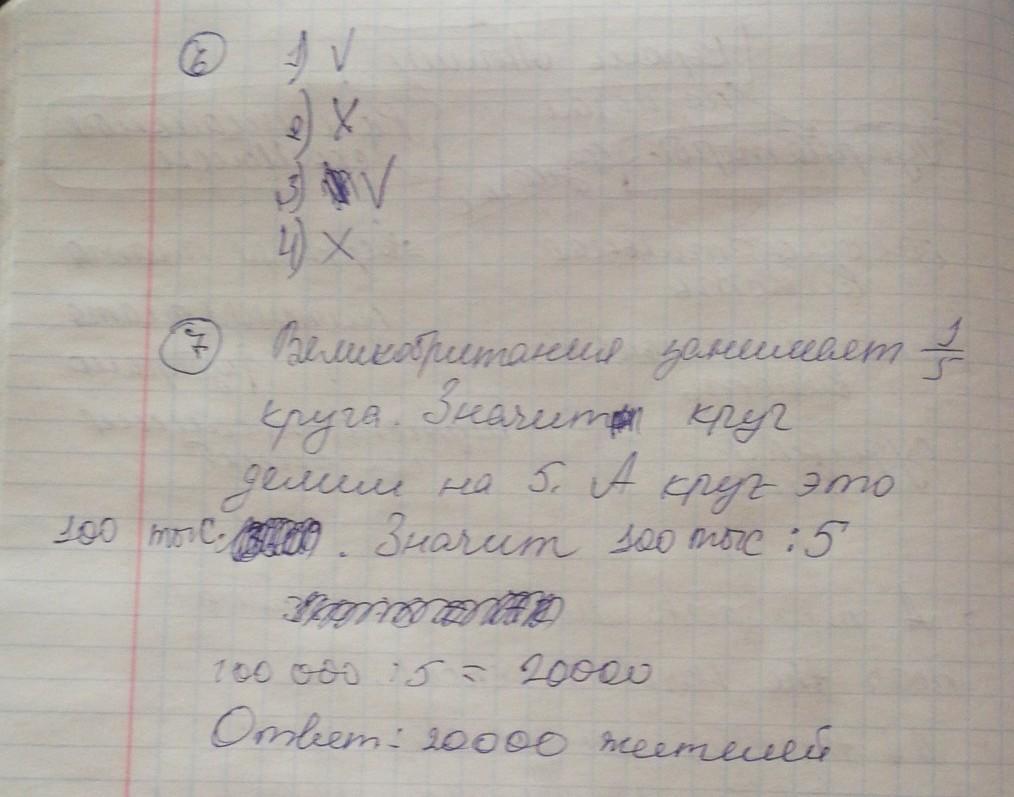 6 1) V
2) X
3) V
4) X
7 Великобритания занимает 1/5
круга. Значит круг
делим на 5. А круг это
100 тыс. Значит 100 тыс : 5
100 000 : 5 = 20000
Ответ: 20000 жителей